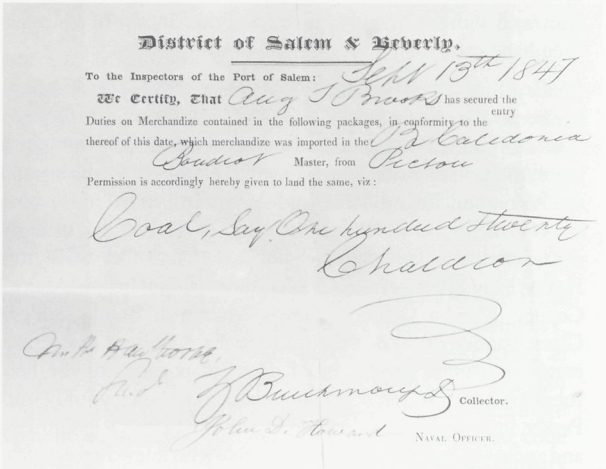 District of Salem & Beverly.
Sept 13th 1847
To the Inspectors of the Port of Salem:
We Certify, That Aug T Brooks has secured the
entry
Duties on Merchandize contained in the following packages, in conformity to the
thereof of this date, which merchandize was imported in the Br Caledonia
Boudrot Master, from Pictou
Permission is accordingly hereby given to land the same, viz:
Coal, Say One hundred & twenty
Chaldron
Hawthorne
Collector.
John D. Howard NAVAL OFFICER.